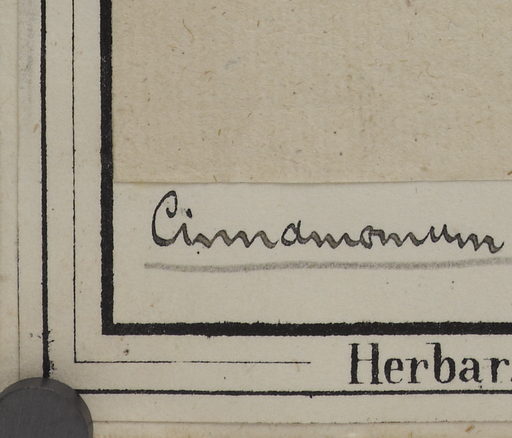 Cinnamomum
Herbar